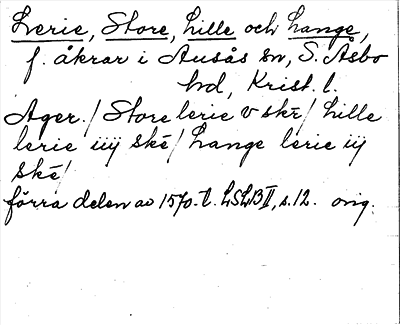 Lerie, Store, Lille och Lange,
f. åkrar i Ausås sn, S. Åsbo
hd, Krist. l.
Ager./ Store lerie v skē/ Lille
lerie iiij skē/ Lange lerie iij
skē/
förra delen av 1570-t. LSLB II, s. 12. orig.